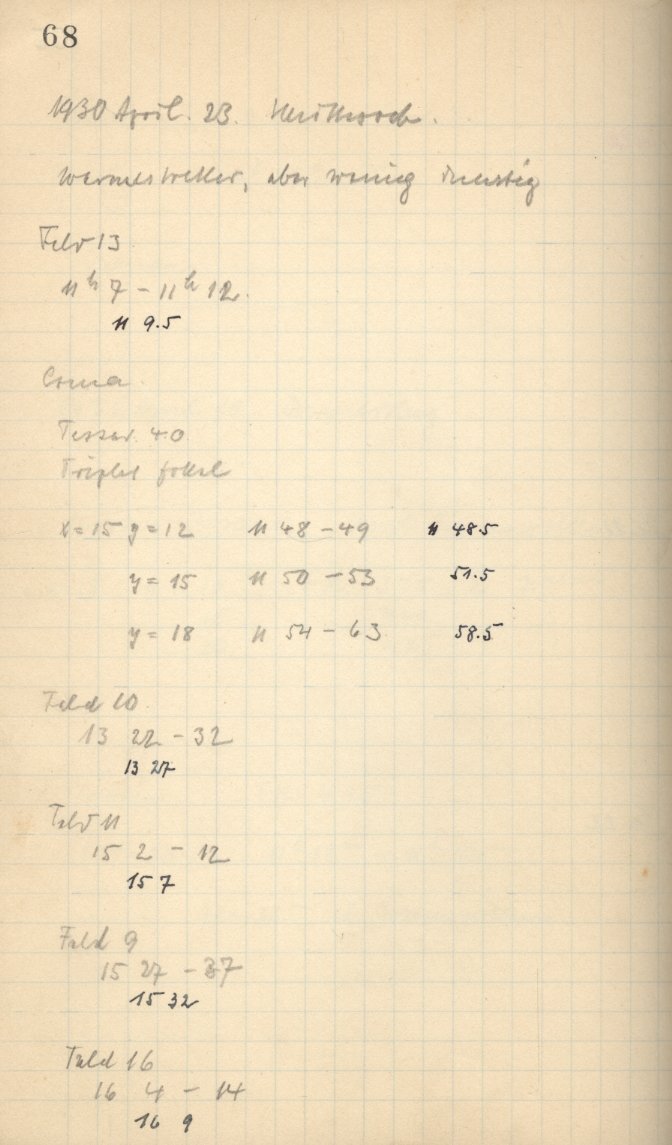 68
1930 April. 23. Mittwoch.
warmes Wetter, aber wenig
Feld 13
11h 7 - 11h 12.
11 9.5
Coma
Tessar. 40
Triplet fokal
x = 15 y = 12 11 48 - 49 11 48.5
y = 15 11 50 - 53 51.5
y = 18 11 54 - 63 58.5
Feld 10
13 22 - 32
13 27
Feld 11
15 2 - 12
15 7
Feld 9
15 27 - 37
15 32
Feld 16
16 4 - 14
16 9